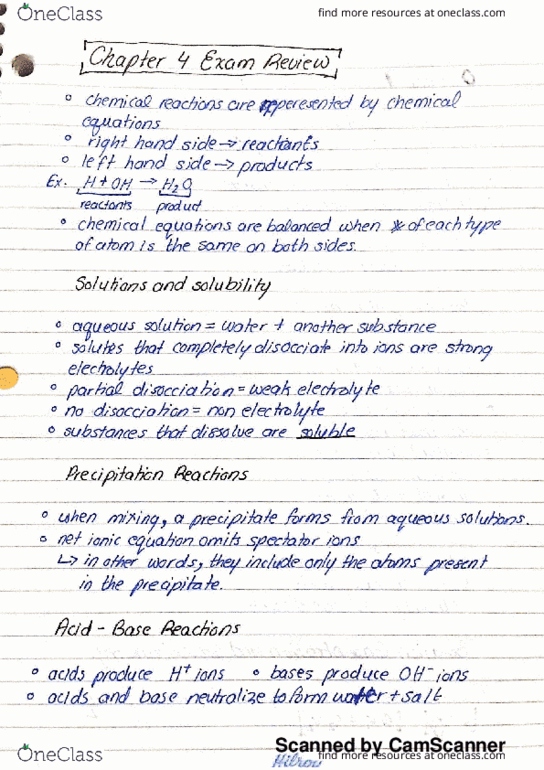 OneClass
find more resources at oneclass.com
Chapter 4 Exam Review
° chemical reactions are represented by chemical
equations
° right hand side → reactants
° left hand side → products
Ex. H + OH → H₂O
reactants product
° chemical equations are balanced when # of each type
of atom is the same on both sides.
Solutions and solubility
° aqueous solution = water + another substance
° solutes that completely disocciate into ions are strong
electrolytes
° partial disocciation = weak electrolyte
° no disocciation = non electrolyte
° substances that dissolve are soluble
Precipitation Reactions
° when mixing, a precipitate forms from aqueous solutions.
° net ionic equation omits spectator ions
↳ in other words, they include only the atoms present
in the precipitate.
Acid - Base Reactions
° acids produce H⁺ ions ° bases produce OH⁻ ions
° acids and base neutralize to form water + salt
Scanned by CamScanner
OneClass
find more resources at oneclass.com
Hilroy